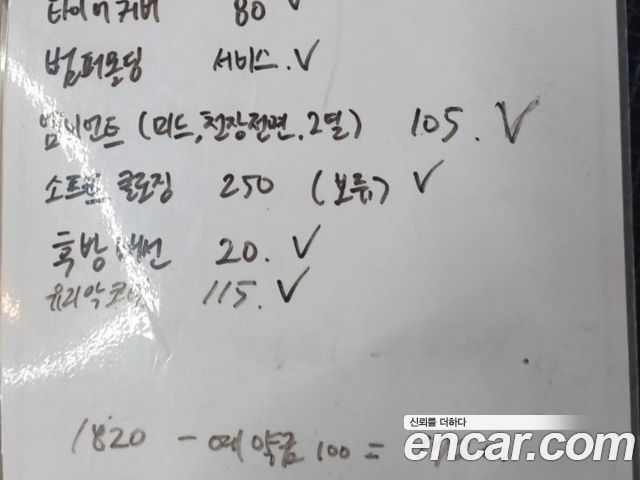 타이어커버 80 V
범퍼몰딩 서비스. V
엠비언트 (미드, 천장전면, 2열) 105. V
소프트 클로징 250 (보류) V
흑방 20. V
유리막코팅 115. V
1820 - 예약금 100 =
신뢰를 더하다
encar.com